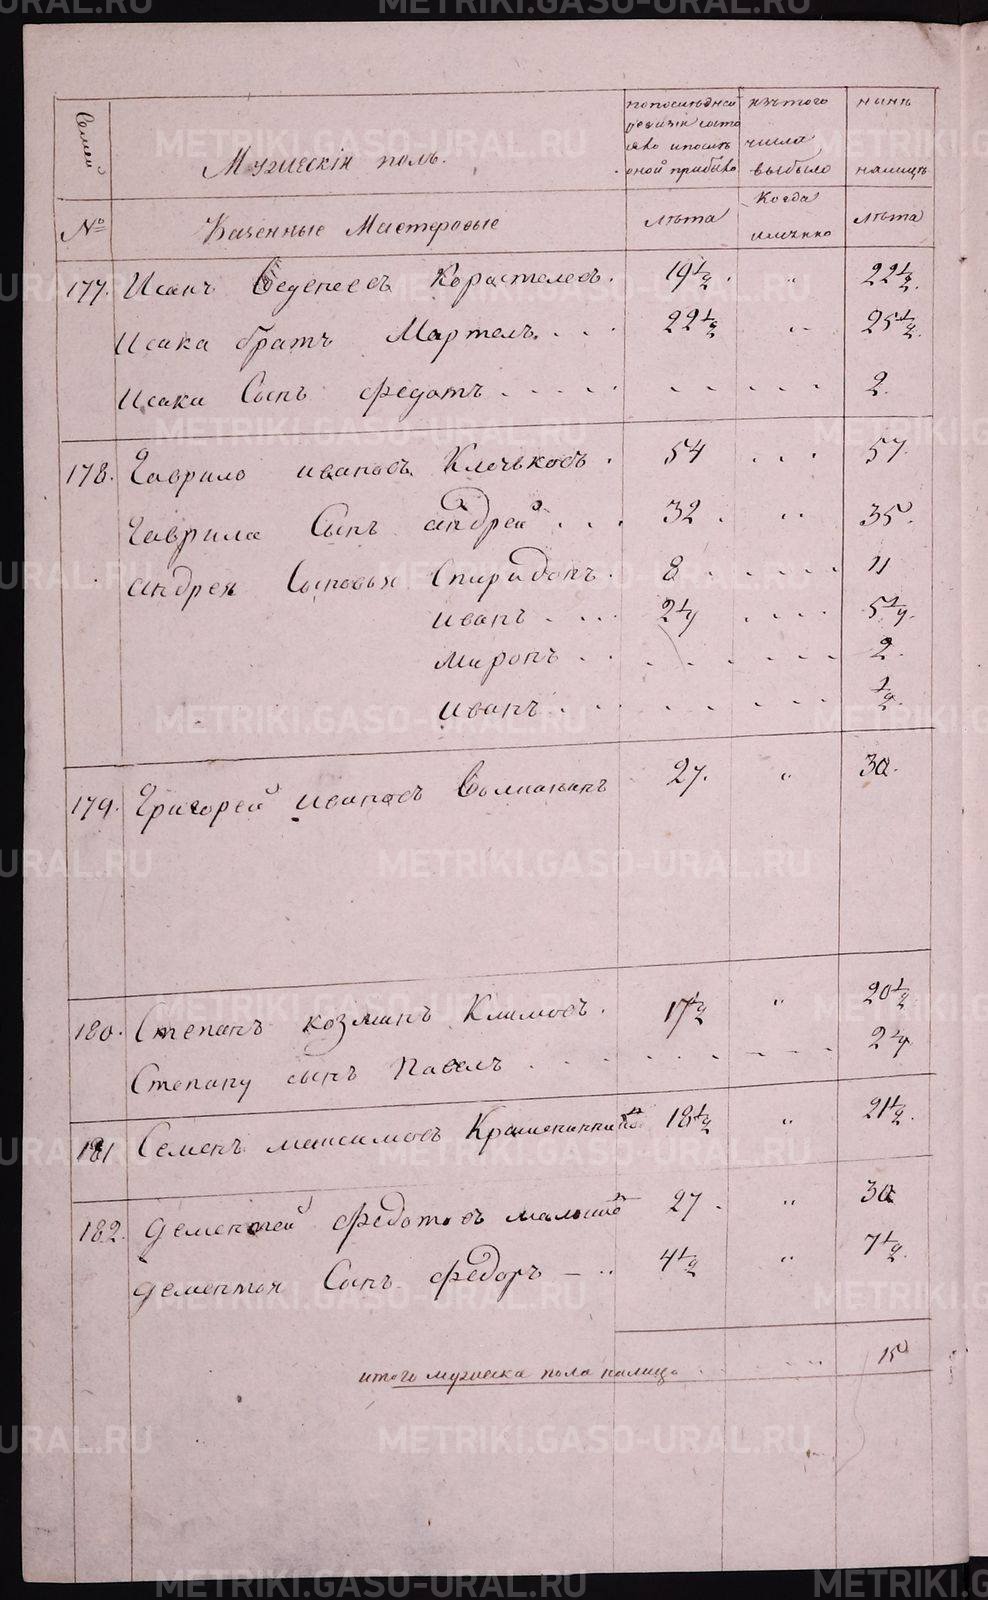 METRIKI.GASO-URAL.RU
Семей №
Мужескiй полъ.
по последней ревизiи состояло и после оной прибыло
изъ того числа выбыло
ныне на лицо
Казенные Мастеровые
лета
Когда именно
лета
177. Исакъ Веденеевъ Коростелевъ. 19½. „ 22½.
Исака братъ Мартемъ. . . 22½ „ 25½.
Исака Сынъ Федотъ . . . . . . . . 2.
178. Гаврило ивановъ Клочьковъ . 54 . . . 57.
Гаврила Сынъ андрей . . . 32 . „ 35.
андрея Сыновья Спиридонъ . 8 . . . . 11
иванъ . . . 2¼ . . . 5¼.
миронъ . . . . . . . 2.
иванъ . . . . . . . ½.
179. Григорей ивановъ 27. „ 30.
180. Степанъ козминъ Климовъ . 17½ „ 20½
Степану сынъ Павелъ . . . . . . . 2¼
181 Семенъ максимовъ 18½ „ 21½.
182. дементей Федотовъ малыше 27 . „ 30
дементья Сынъ Федоръ – .. 4½ „ 7½.
итого мужеска пола налицо . . . 15